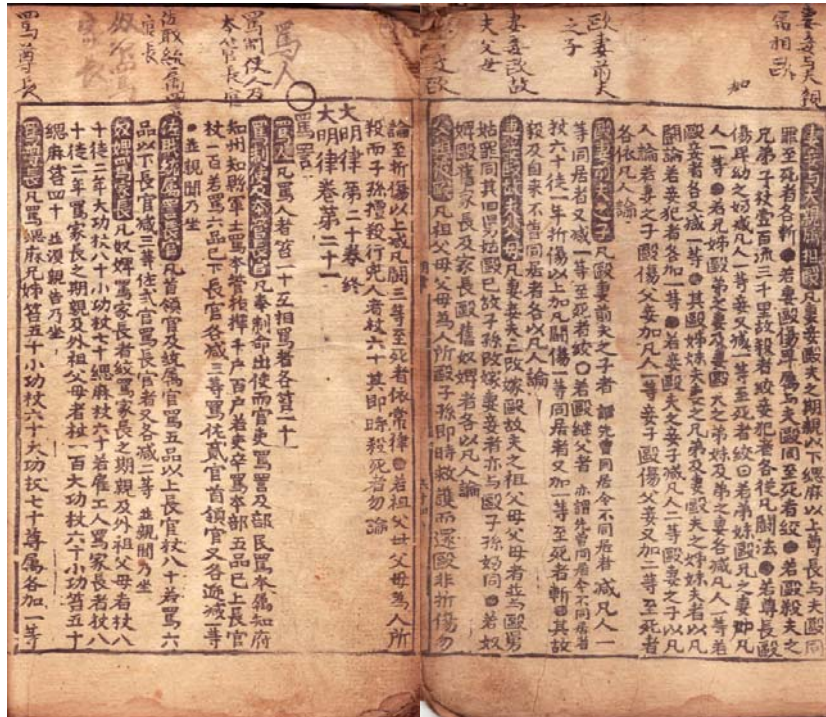 妻妾与夫親屬相歐
加
歐妻前夫之子
妻妾歐故夫父母
妻妾与夫親屬相毆 凡妻妾毆夫之期親以下緦麻以上尊長与夫毆同
罪至死者各斬●若妻毆傷卑属与夫毆同至死者絞●若毆殺夫之
兄弟子杖壹百流三千里故殺者絞妾犯者各從凡鬪法●若尊長毆
傷卑幼之婦减凡人一等妾又减一等至死者絞●若弟妹毆兄之妻加凡
人一等●若兄姉毆弟之妻及妻毆夫之弟妹及弟之妻各减凡人一等若
毆妾者各又减一等●其毆姊妹夫妻之兄弟及妻毆夫之姊妹夫者以凡
鬪論若妾犯者各加一等●若妾毆夫之妾子减凡人二等毆妻之子以凡
人論若妻之子毆傷父妾加凡人一等妾子毆傷父妾又加二等至死者
各依凡人論
毆妻前夫之子 凡毆妻前夫之子者 謂先曾同居今不同居者 减凡人一
等同居者又减一等至死者絞○若毆継父者 亦謂先曾同居今不同居者
杖六十徒一年折傷以上加凡鬪傷一等同居者又加一等至死者斬●其故
殺及自來不曾同居者各以凡人論
妻妾毆故夫父母 凡妻妾夫亡改嫁毆故夫之祖父母父母者並与毆舅
姑罪同其旧舅姑毆已故子孫改嫁妻妾者亦与毆子孫婦同●若奴
婢毆舊家長及家長毆舊奴婢者各以凡人論
父祖被毆 凡祖父母父母為人所毆子孫即時救護而還毆非折傷勿
罵人
罵制使人及本管長官
佐職統属罵官長
奴婢罵家長
罵尊長
論至折傷以上减凡鬪三等至死者依常律●若祖父母父母為人所
殺而子孫擅殺行兇人者杖六十其即時殺死者勿論
大明律 第二十卷 終
大明律 卷第二十一
罵詈
罵人 凡罵人者笞一十互相罵者各笞一十
罵制使及本管長官 凡奉制命出使而官吏罵詈及部民罵本属知府
知州知縣軍士罵本管指揮千户百户若吏卒罵本部五品已上長官
杖一百若罵六品已下長官各减三等罵佐貳官首領官又各遞减一等
●並親聞乃坐
佐職統属罵長官 凡首領官及統属官罵五品以上長官杖八十若罵六
品以下長官减三等佐貳官罵長官者又各减二等 並親聞乃坐
奴婢罵家長 凡奴婢罵家長者絞罵家長之期親及外祖父母者杖八
十徒二年大功杖八十小功杖七十緦麻杖六十若雇工人罵家長者杖八
十徒二年罵家長之期親及外祖父母者杖一百大功杖六十小功笞五十
緦麻笞四十 並湏親告乃坐
罵尊長 凡罵緦麻兄姉笞五十小功杖六十大功杖七十尊属各加一等